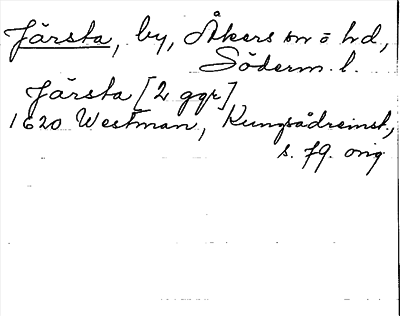 Järsta, by, Åkers sn o hd,
Söderm. l.
Järsta [2 ggr]
1620 Westman, Kungsådreinst.,
s. 79. orig